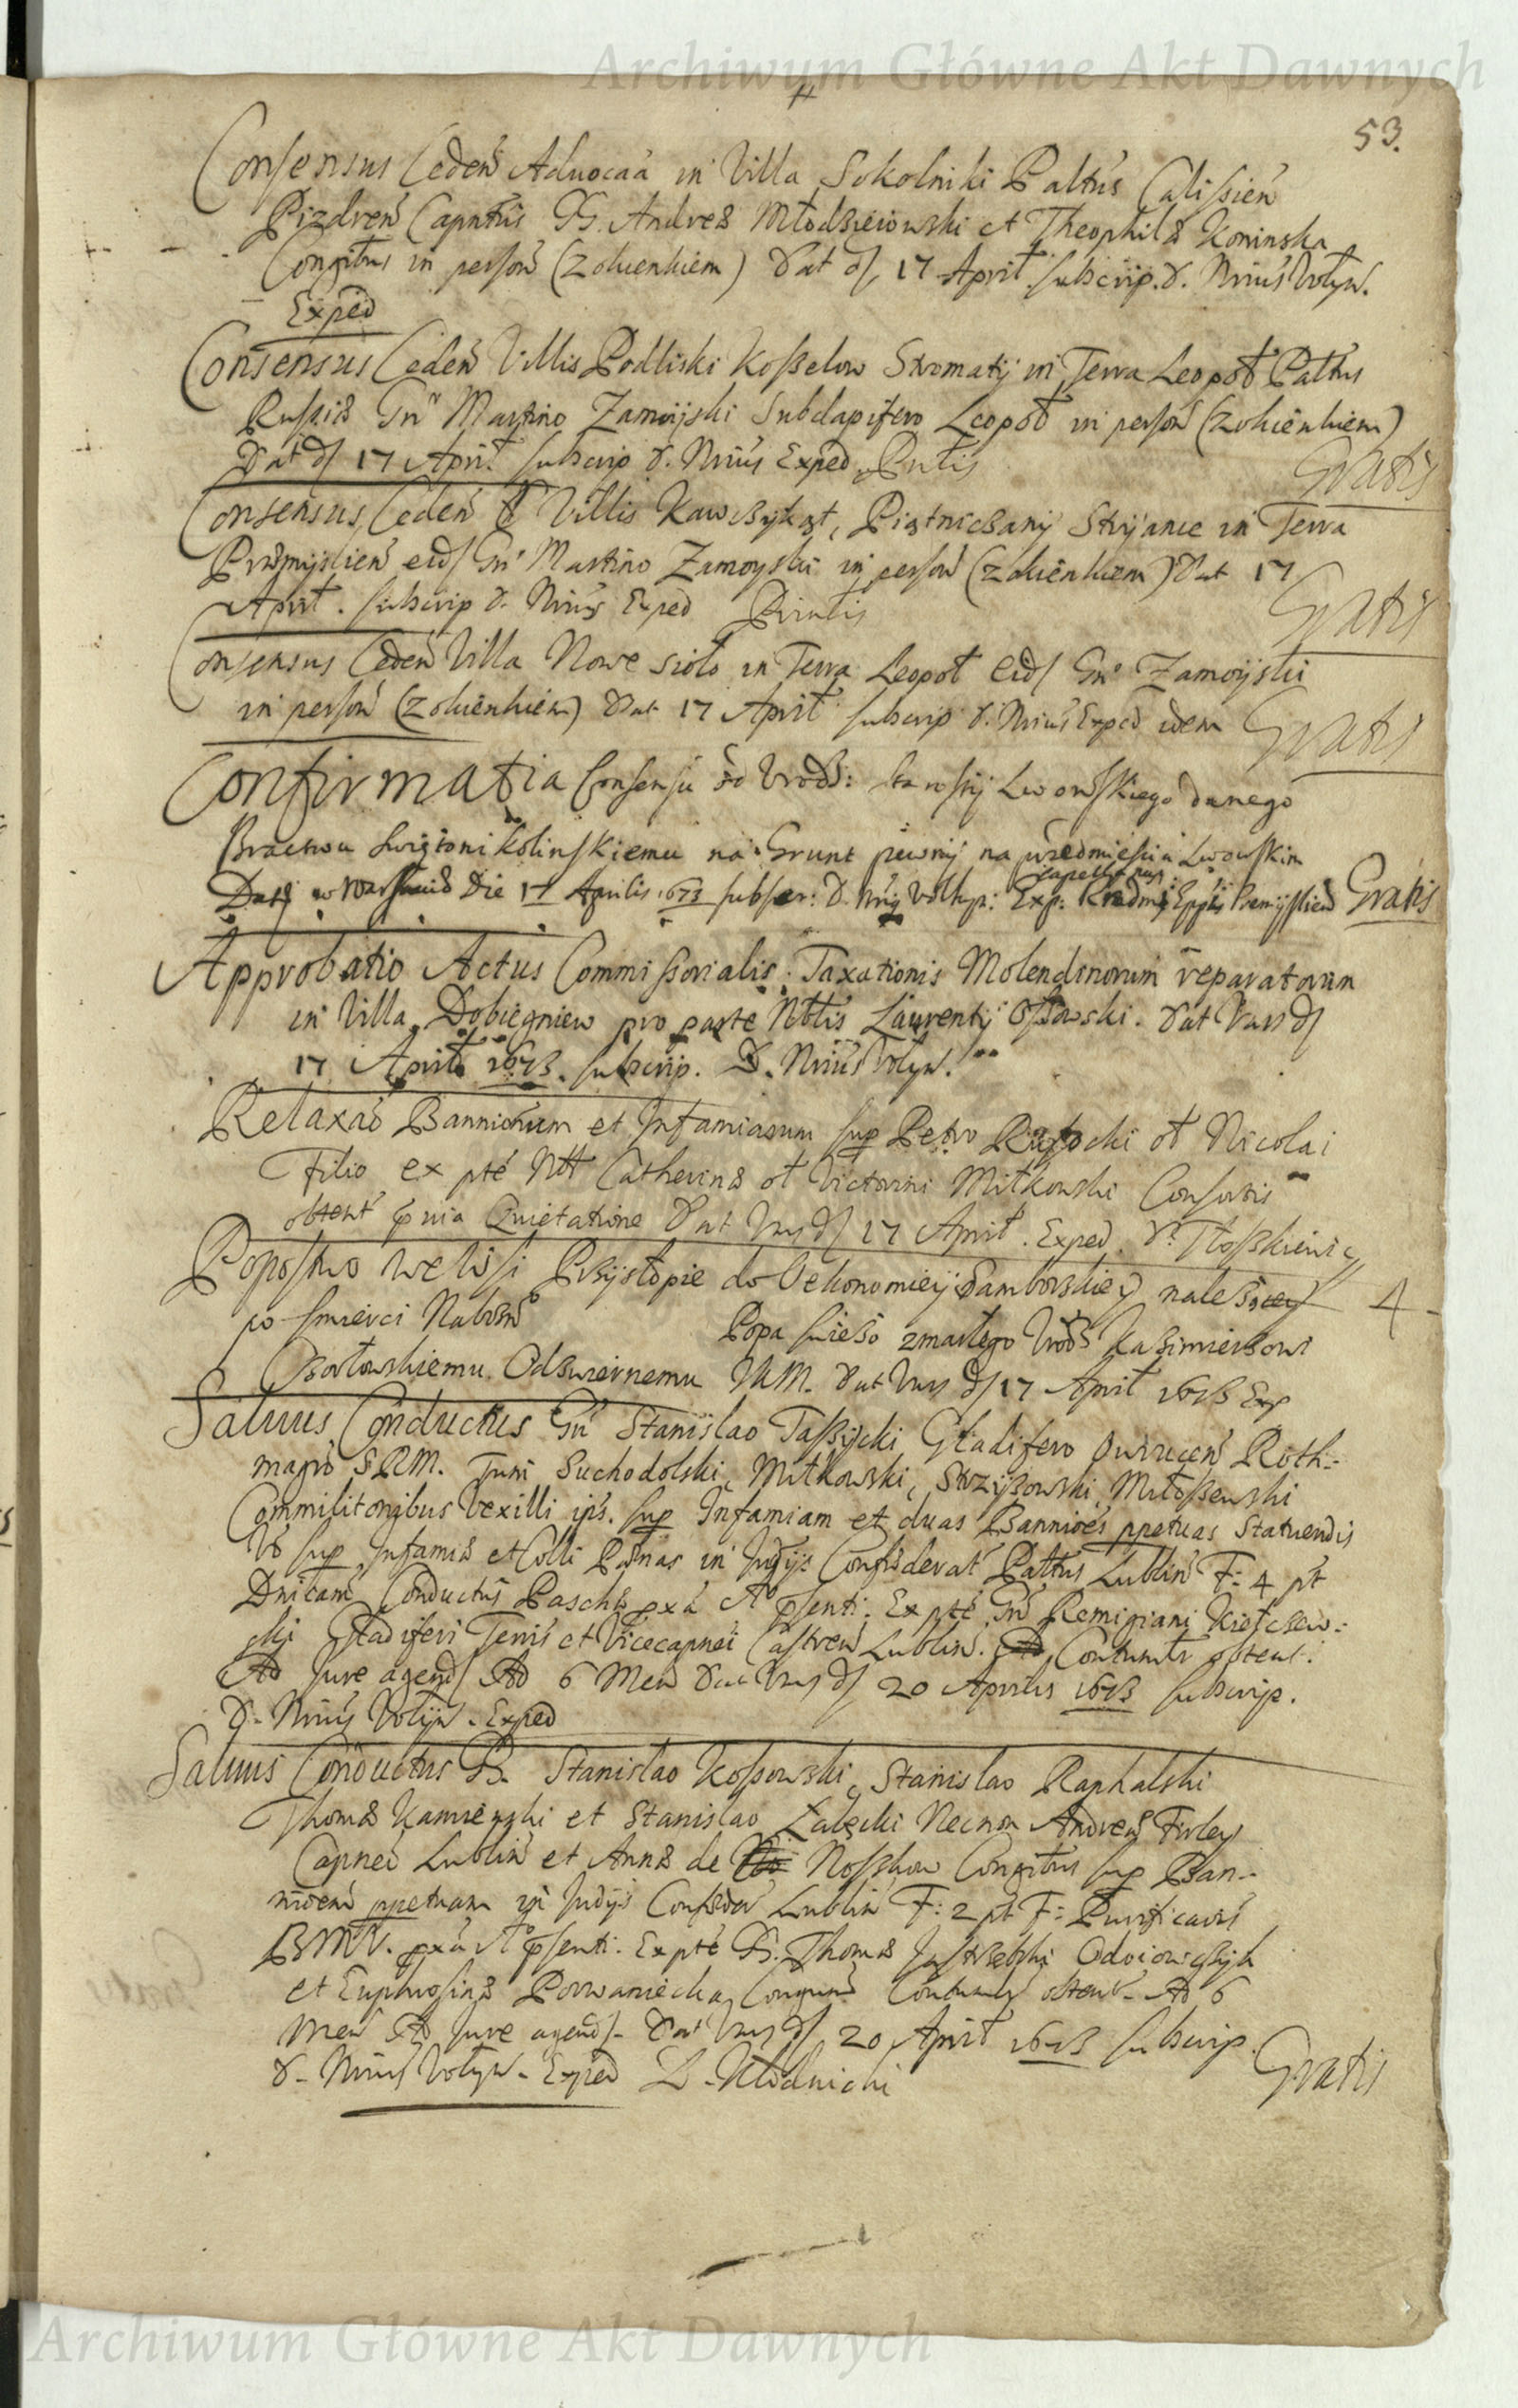 Archiwum Główne Akt Dawnych
53.
Consensus Cedeń Aduocaã in Villa Sokolniki Paltûs Calissień
Pizdreń Capntûs GG. Andreæ Młodzieiowski et Theophilæ Koninska
Congibus in persoń (Zokienkiem) Dat d. 17 April. subscrip. D. Nriûs Wołyń.
Exped
Consensus Cedeń Villis Podliski Kosselow Stromaty in Terra Leopoł Paltûs
Russiæ Gn° Martino Zamoyski Subdapifero Leopoł in persoń (Zokienkiem)
Dat d. 17 April subscrip D. Nriûs Exped Gratis
Consensus Cedeń Villis Kawczykąt, Piątniczany Stryiance in Terra
Præmyslień eid. Gn° Martino Zamoyski in persoń (Zokienkiem) Dat 17
April. subscrip D. Nriûs Exped Gratis
Consensus Cedeń Villa Nowe Sioło in Terra Leopoł eid. Gn° Zamoyski
in persoń (Zokienkiem) Dat 17 April subscrip D. Nriûs Exped idem Gratis
Confirmatia Consensu od Urodz: Starosty Lwowskiego danego
Bractwu Swiętonikolinskiemu na Grunt pewny na przedmiesciu Lwowskim
Datt w Warszawie Die 17 Aprilis 1673 subscr: D. Nriy Wołhyn: Exp: Rndmi Eppi Premysslien Gratis
Approbatio Actus Commissorialis Taxationis Molendinorum reparatorum
in Villa Dobiegniew pro parte Nblis Laurentij Ossowski. Dat Vars d.
17 April 1673. subscrip. D. Nriûs Wołyń.
Relaxaõ Bannionum et Infamiarum sup Petro ol Nicolai
Filio ex pte Nbl Catherinæ ol Victorini Mitkowski Consortis
obtent p nia Quietatione Dat Vars d. 17 April. Exped. D. Tłoszkiewic
Popostwo we Wsi Przystopie do Oekonomiey Samborskiey należącey 4
po smierci Nabożn° Popa świeżo zmarłego Urodz Kazimierzowi
Czortowskiemu Odzwiernemu JKM. Dat Vars d. 17 April 1673 Exp
Saluus Conductus Gn° Stanislao Taszycki Gladifero Owrucen Roth-
magro SRM. Tum Suchodolski, Mitkowski, Strzyżowski, Miłoszewski
Commilitonibus Vexilli ips. sup Infamiam et duas Banniões ppetuas Statuendis
Vo sup Infamiæ et Colli Pœnas in Judijs Confœderat Paltus Lublin F: 4 pt
Dnicam Conductus Paschæ pxa A° psenti. Ex pte Gn° Remigiani Kiełczew-
ski Gladiferi Terris et Vicecapnei Castreń Lublin. Contumlr obtent.
Ad Jure agend. Ad 6 Meń Dat Vars d. 20 Aprilis 1673 subscrip.
D. Nriûs Wołyń. Exped
Saluus Conductus G. Stanislao Kossowski, Stanislao Raphalski
Thomæ Kamienski et Stanislao Zalęcki Necnon Andreæ Firley
Capneo Lublin et Annæ de Noszkow Congibus sup Ban-
nioem ppetuam in Judijs Confœder Lublin F: 2 pt F: Purificaõis
BMV. pxa A° psenti. Ex pte G. Thomæ Jastrzębski Odoiowczyk
et Euphrosinæ Porwaniecka Congum Contumlr obtent. Ad 6
Meń Ad Jure agend. Dat Vars d. 20 April 1673 subscrip.
D. Nriûs Wołyń. Exped D. Kłodnicki Gratis
Archiwum Główne Akt Dawnych